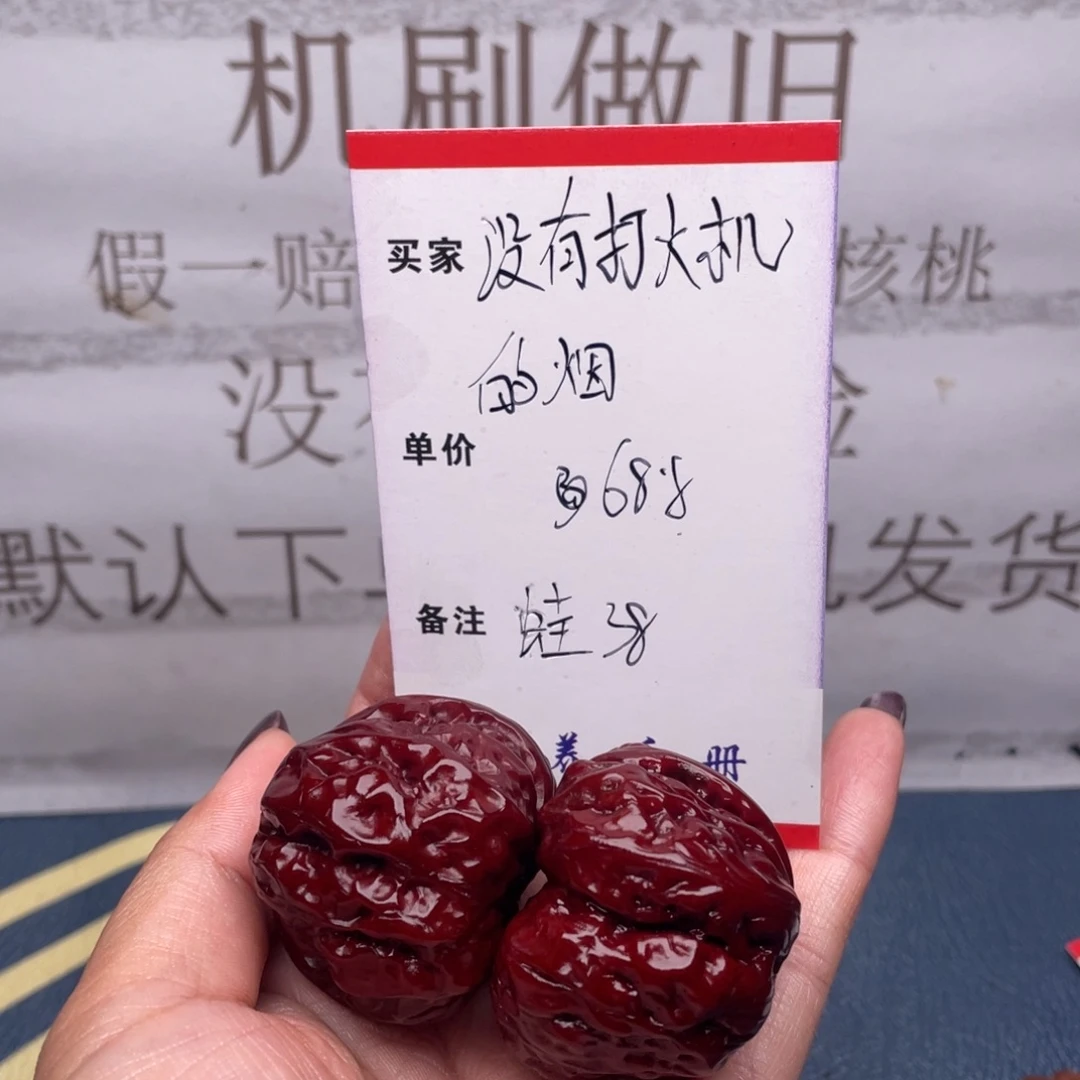 机刷做旧
假一赔
核桃
没
默认下
发货
买家 没有打火机
的烟
单价
68
备注 蛙 38
养
册